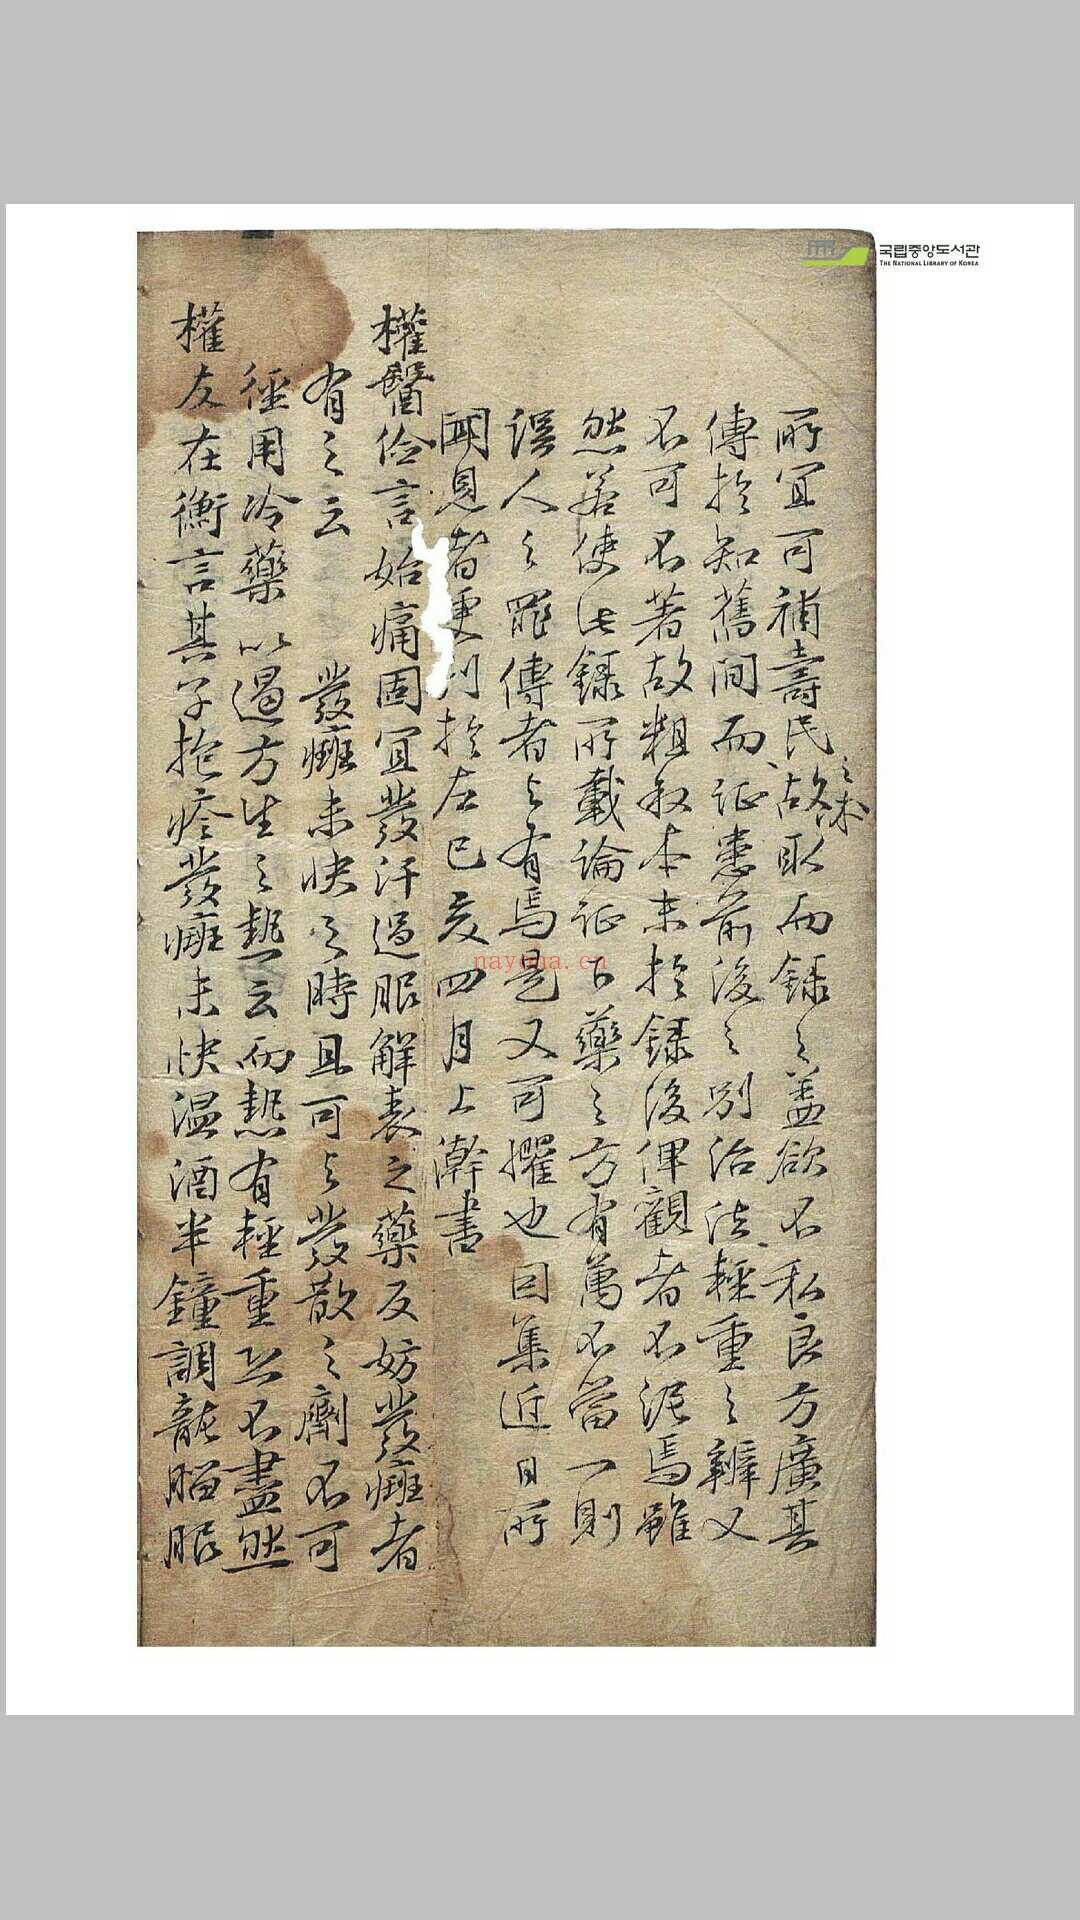 국립중앙도서관
THE NATIONAL LIBRARY OF KOREA
所宜可補壽民之术故取而錄之盖欲不私良方廣其
傳於知舊間而證患前後之別治法輕重之辨又
不可不著故粗叙本末於錄後俾觀者不泥焉雖
然若使此錄所載論証下藥之方有萬不當一則
誤人之罪傳者与有焉是又可懼也因集近日所
聞見者更列於左己亥四月上澣書
權醫 言始痛固宜發汗過服解表之藥反妨發癍者
有之云 發癍未快之時且可与發散之劑不可
徑用冷藥以遏方生之熱云而熱有輕重恐不盡然
權友在衡言其子抱疹發癍未快温酒半鐘調龍腦服
nayona.cn